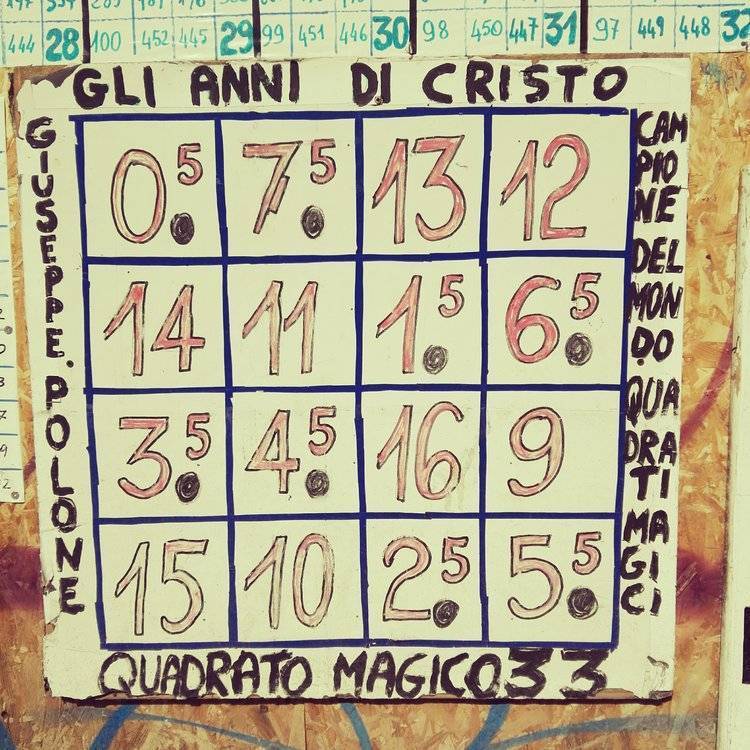 444 28 100 452 445 29 99 451 446 30 98 450 447 31 97 449 448 32
GLI ANNI DI CRISTO
GIUSEPPE. POLONE
0.5 7.5 13 12
14 11 1.5 6.5
3.5 4.5 16 9
15 10 2.5 5.5
CAM
PIO
NE
DEL
MON
DO
QUA
DRA
TI
MA
GI
CI
QUADRATO MAGICO 33